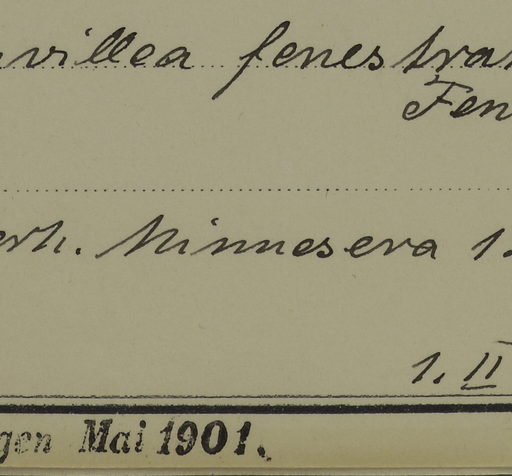 villea fenestra
Fen
erh. Minneseva 1.
1. II
gen Mai 1901.